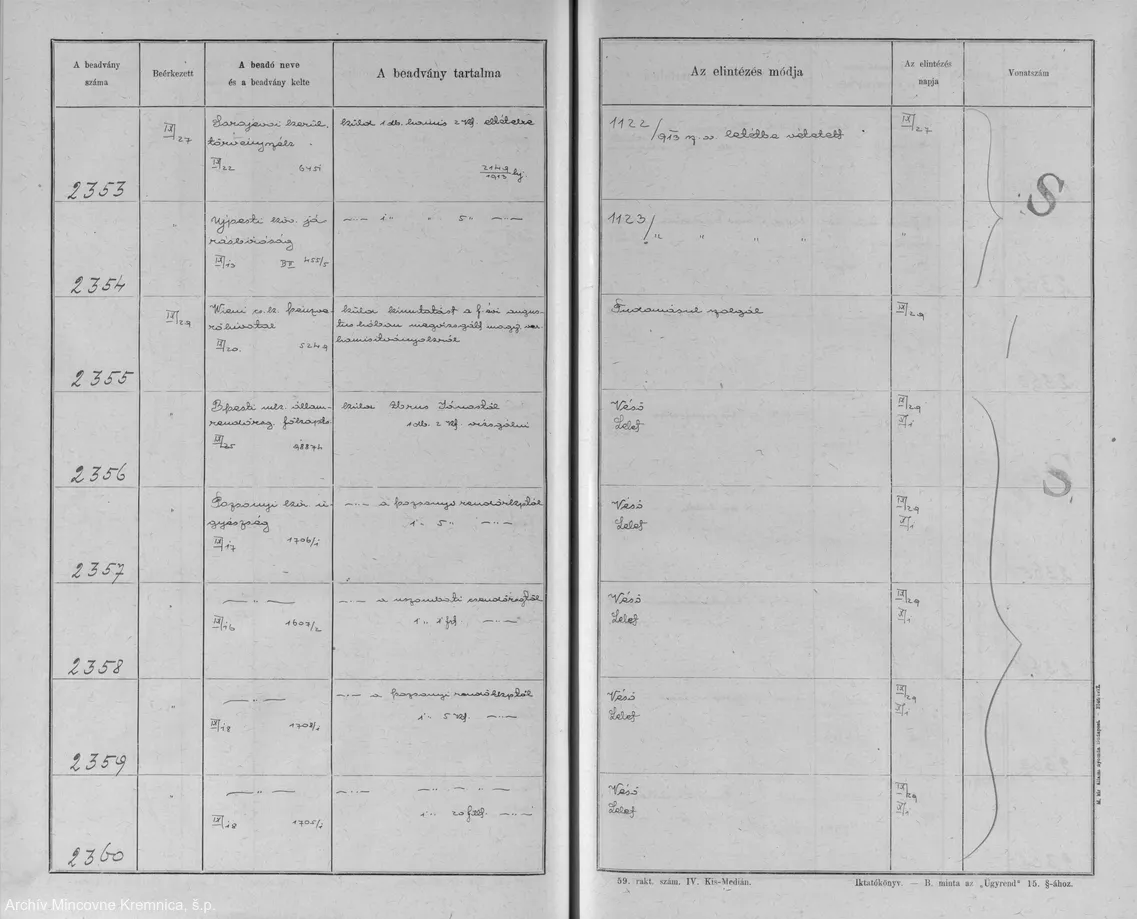 A beadvány száma
Beérkezett
A beadó neve és a beadvány kelte
A beadvány tartalma
Az elintézés módja
Az elintézés napja
Vonatszám
2353
IX/27
Sarajevoi kerül. törvényszék
IX/22 6451
küld 1 db. hamis 2 Kf. elítélve
2149/1913 bj.
1122/913 sz. a. letétbe vétetett
IX/27
S
2354
"
Ujpesti kir. járásbíróság
IX/13 BII 455/5
—"— 1 " " 5 " —"—
1123/" " " " "
"
2355
IX/29
Wieni cs. k.
IX/20. 5249
küld kimutatást a f. évi augusztus hóban megvizsgált
Tudomásul szolgál
IX/29
2356
"
Bpesti állam-rendőrség
IX/25
küld János
1 db. 2 Kf. vizsgálni
Véső
Lelet
IX/29
X/1
S
2357
"
Pozsonyi kir. ügyészség
IX/17 1706/1
—"— a pozsonyi
1 " 5 " —"—
Véső
Lelet
IX/29
X/1
2358
"
— " —
IX/16 1607/2
—"— a
1 " —"—
Véső
Lelet
IX/29
X/1
2359
"
— " —
IX/18 1708/1
—"— a pozsonyi
1 " 5 Kf. —"—
Véső
Lelet
IX/29
X/1
2360
"
— " —
IX/18 1705/1
—"— — " — " —
1 " 20 —"—
Véső
Lelet
IX/29
X/1
59. rakt. szám. IV. Kis-Medián.
Iktatókönyv. — B. minta az „Ügyrend" 15. §-ához.
Archív Mincovne Kremnica, š.p.